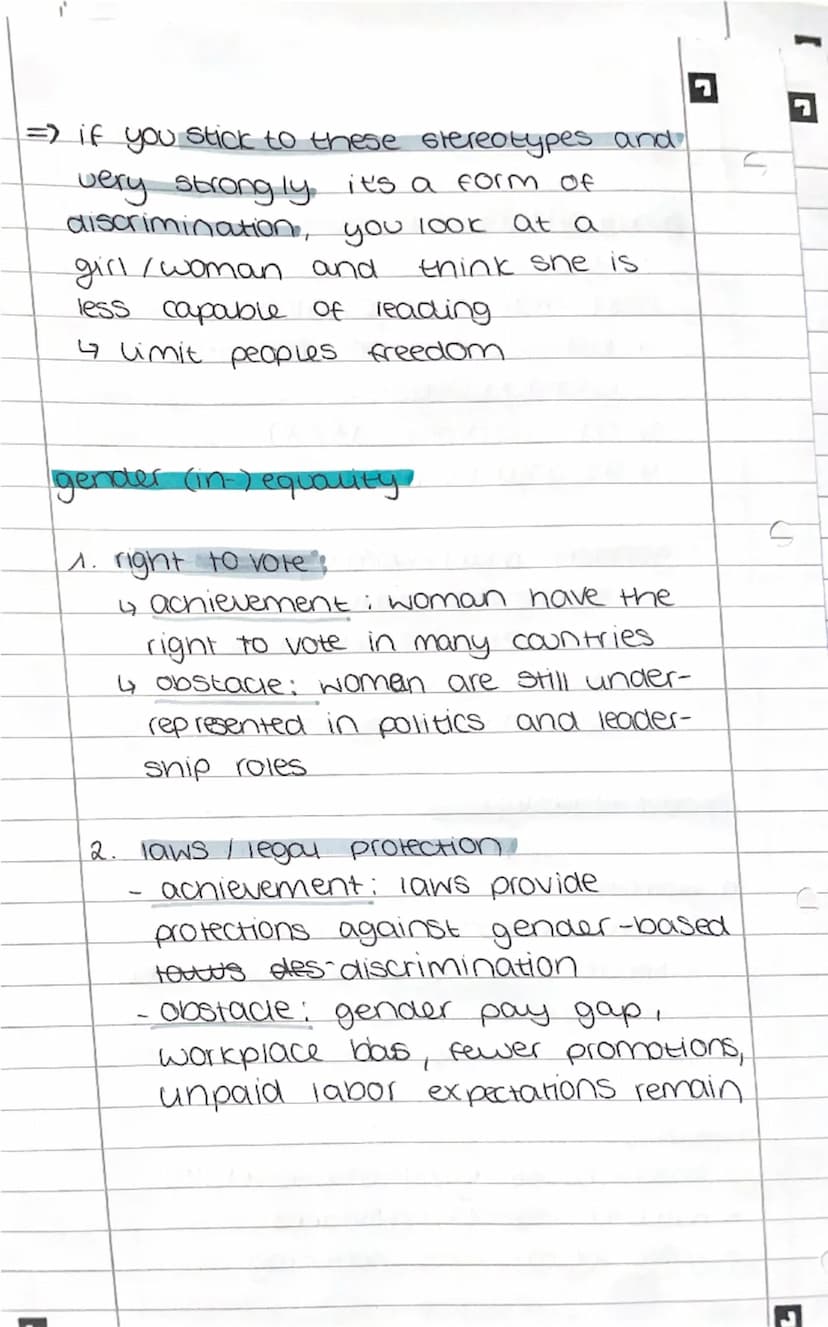 => if you stick to these stereotypes and
very strongly it's a form of
discrimination, you look at a
girl / woman and think she is
less capable of leading
↳ limit peoples freedom
gender (in-) equality
1. right to vote:
↳ achievement: woman have the
right to vote in many countries
↳ obstacle: women are still under-
represented in politics and leader-
ship roles
2. laws / legal protection
- achievement: laws provide
protections against gender-based
discrimination
- obstacle: gender pay gap,
workplace bias, fewer promotions,
unpaid labor expectations remain